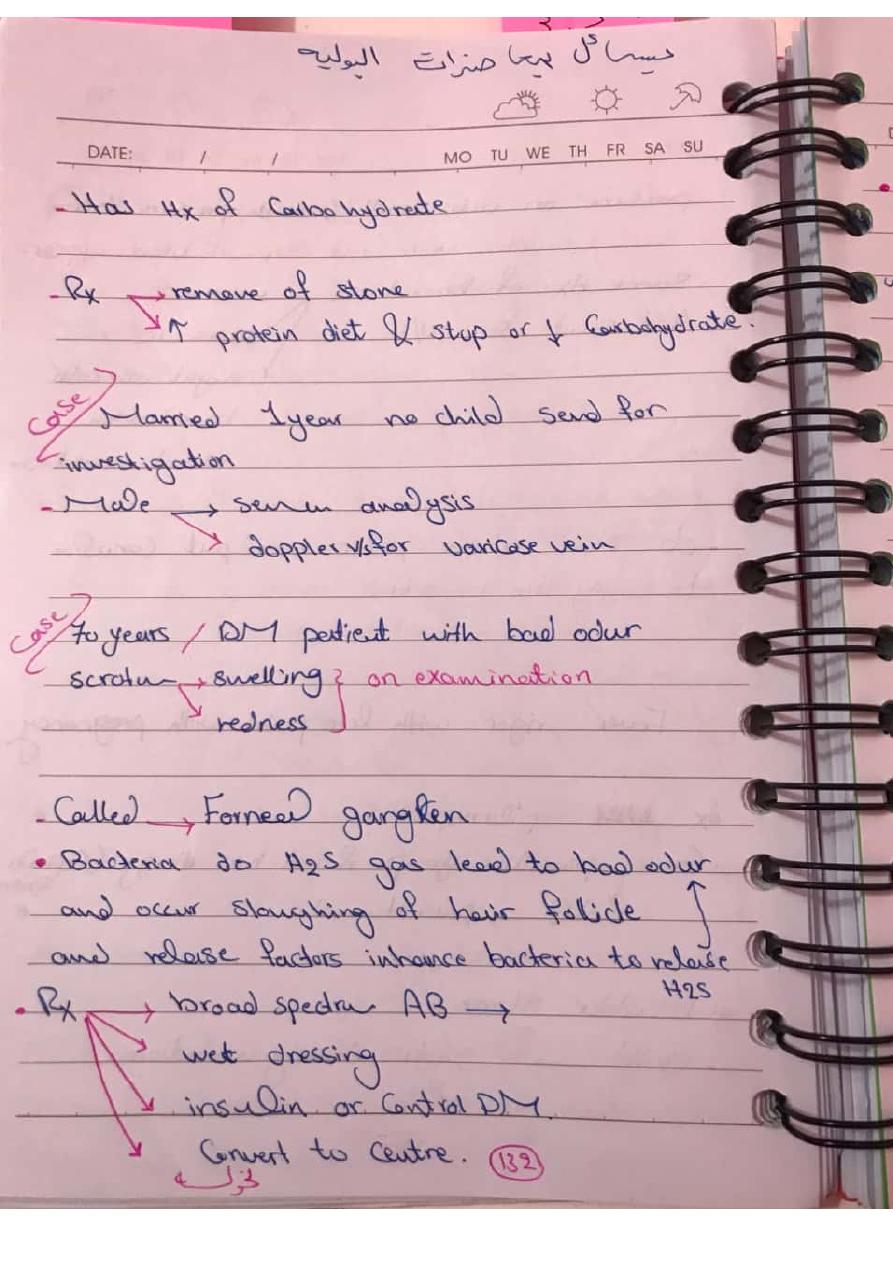 محاضرات البوليه
DATE: / / MO TU WE TH FR SA SU
- Has Hx of Carbohydrate
- Rx → remove of stone
↑ protein diet & stop or ↓ Carbohydrate.
Case
Married 1 year no child send for
investigation
- Male → semen analysis
doppler v/s for varicose vein
Case
70 years / DM patient with bad odur
scrotum → swelling } on examination
redness
- Called → Forneal gangren
• Bacteria do H2S gas lead to bad odur
and occur sloughing of hair folicle
and release factors inhance bacteria to release
H2S
• Rx → broad spectrum AB →
wet dressing
insulin or Control DM.
Convert to Centre. 132